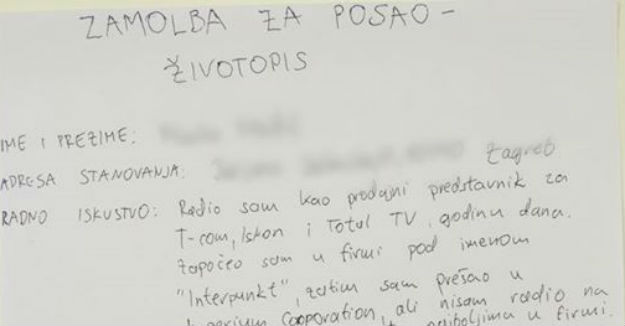 ZAMOLBA ZA POSAO -
ŽIVOTOPIS
IME I PREZIME:
ADRESA STANOVANJA: Zagreb
RADNO ISKUSTVO: Radio sam kao prodajni predstavnik za
T-com, Iskon i Total TV, godinu dana.
Započeo sam u firmi pod imenom
"Interpunkt", zatim sam prešao u
Cooporation, ali nisam radio na
najboljima u firmi.